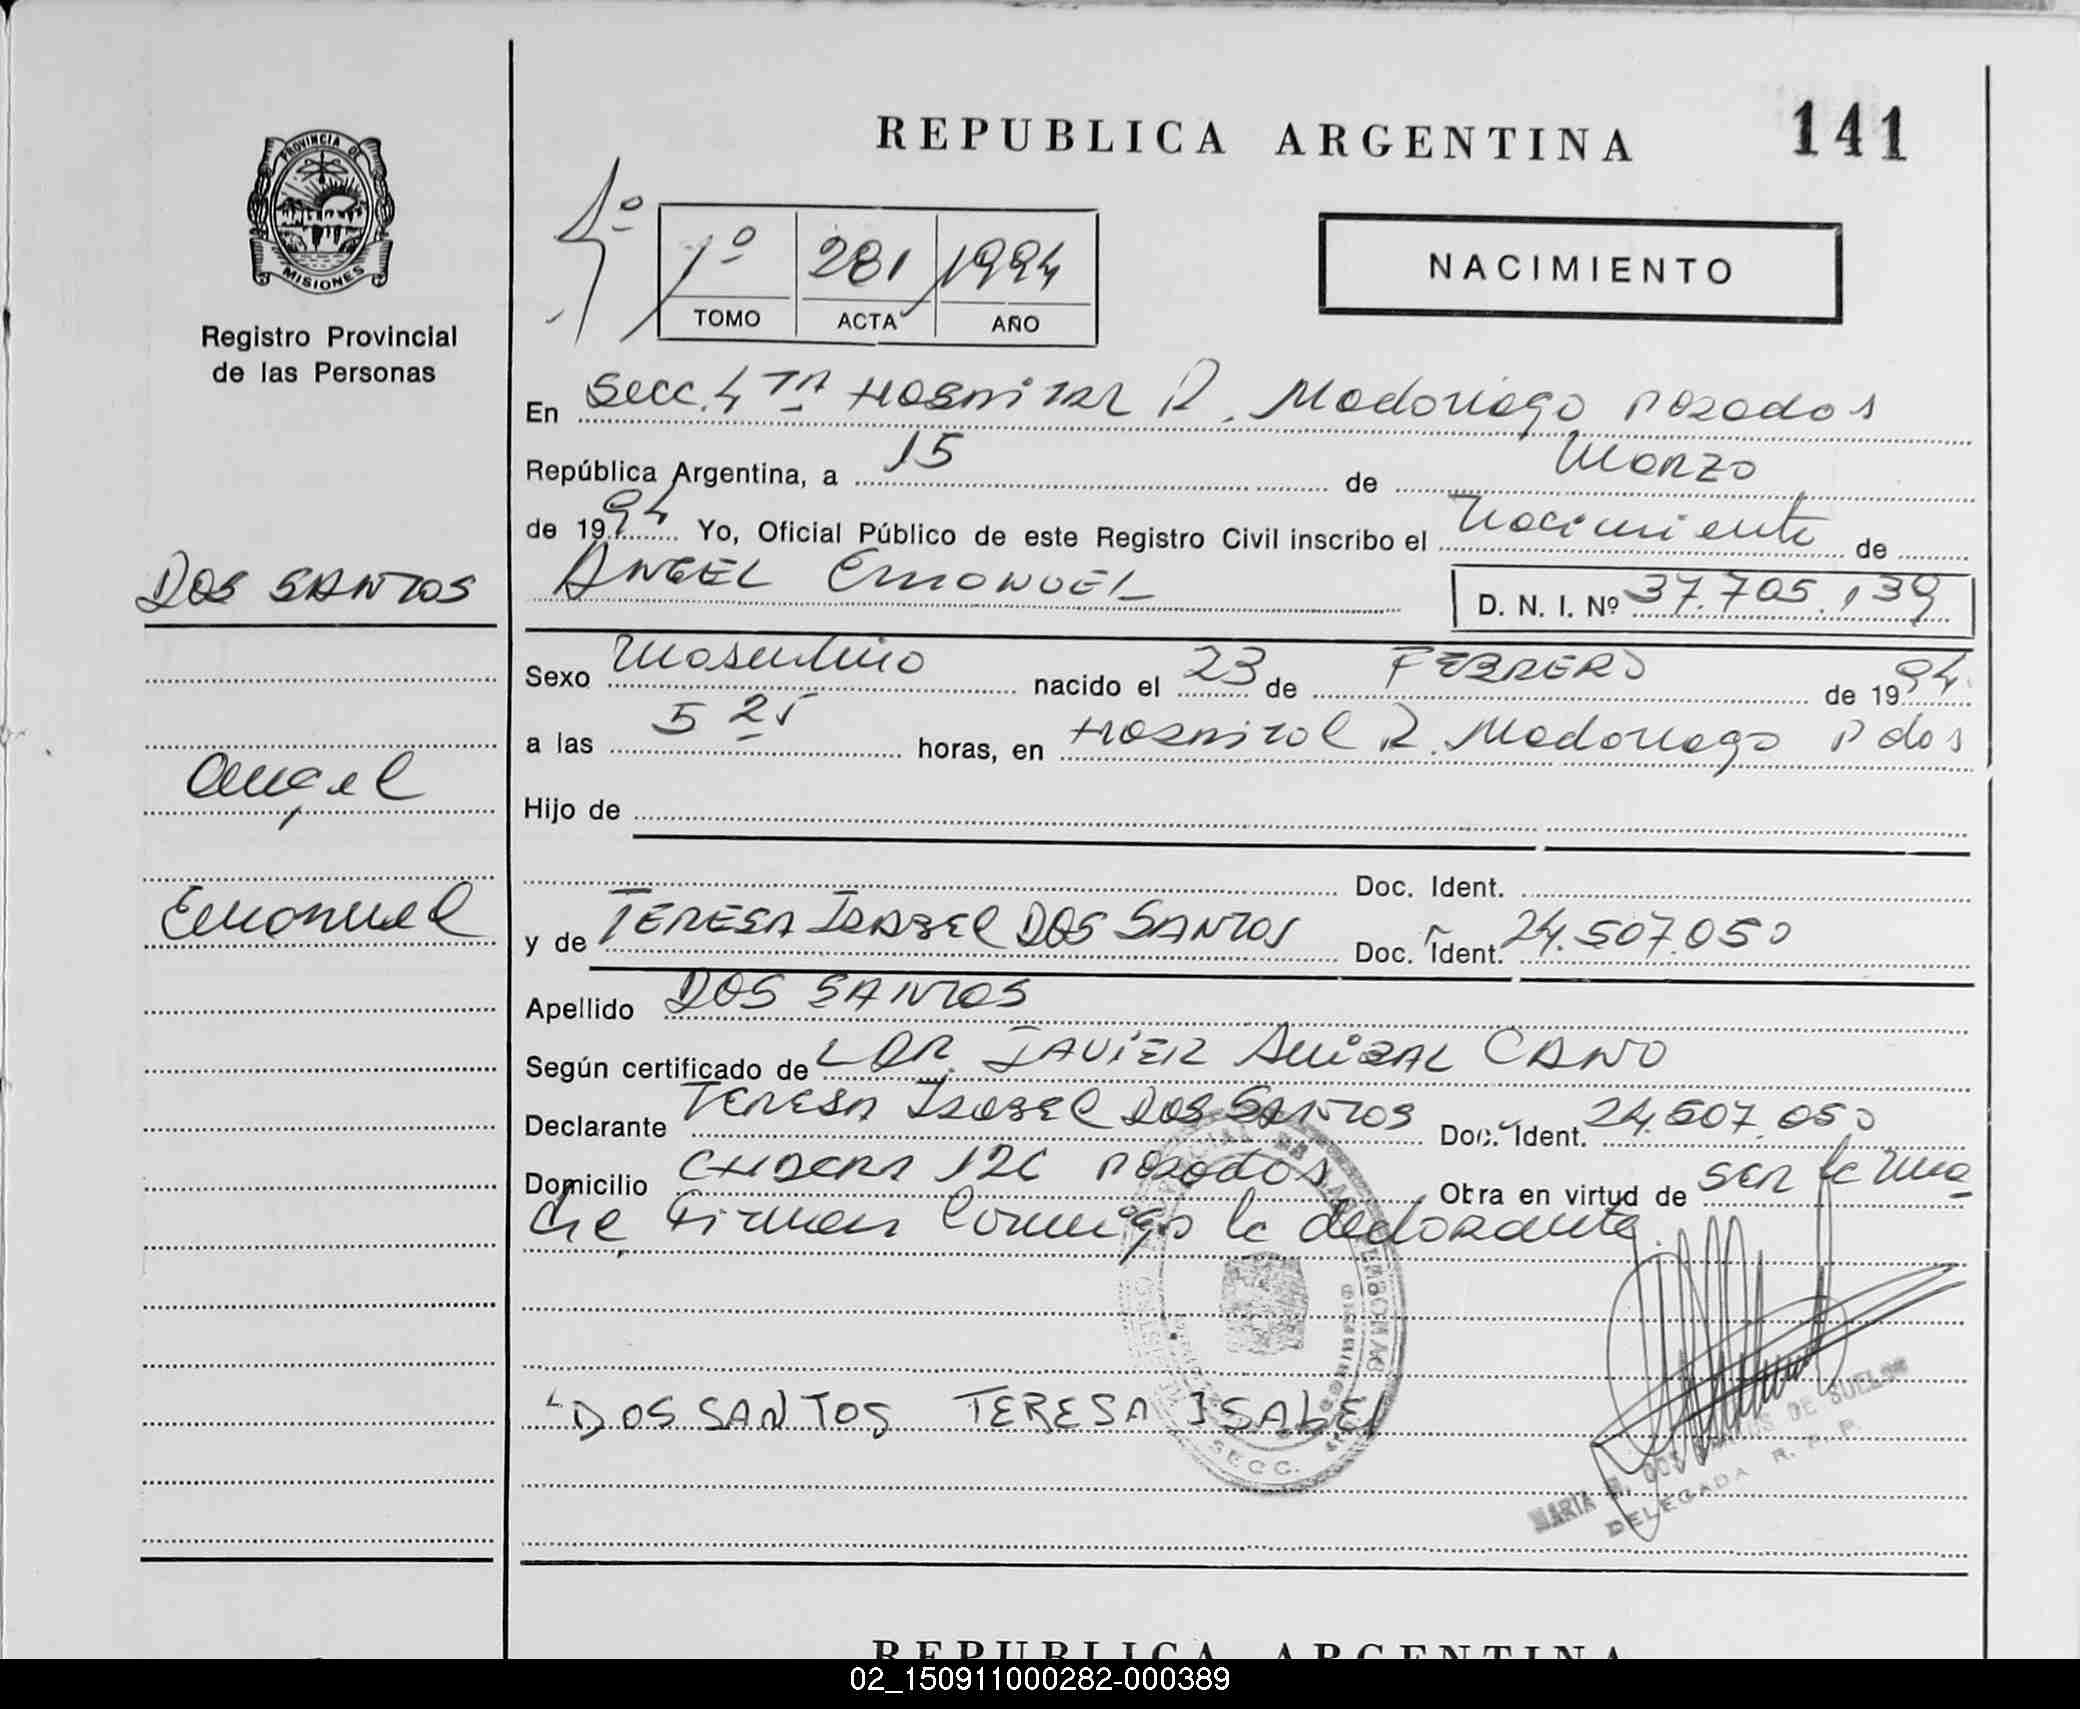 REPUBLICA ARGENTINA
141
PROVINCIA DE
MISIONES
Registro Provincial
de las Personas
1º 281 1994
TOMO ACTA AÑO
NACIMIENTO
En Secc. 4TA Hospital R. Madariaga Posadas
República Argentina, a 15 de Marzo
de 1994 Yo, Oficial Público de este Registro Civil inscribo el Nacimiento de
ANGEL EMANUEL D. N. I. Nº 37.705.139
DOS SANTOS
Angel
Emanuel
Sexo Masculino nacido el 23 de FEBRERO de 1994.
a las 5 25 horas, en Hospital R. Madariaga Pdas
Hijo de
Doc. Ident.
y de TERESA ISABEL DOS SANTOS Doc. Ident. 24.507.050
Apellido DOS SANTOS
Según certificado de DR. JAVIER ANIBAL CANO
Declarante TERESA ISABEL DOS SANTOS Doc. Ident. 24.507.050
Domicilio 126 Posadas Obra en virtud de ser la ma-
dre. Firman conmigo la declarante.
DOS SANTOS TERESA ISABEL
SECC.
MARIA DOS SANTOS DE
DELEGADA R. P. P.
REPUBLICA ARGENTINA
02_150911000282-000389